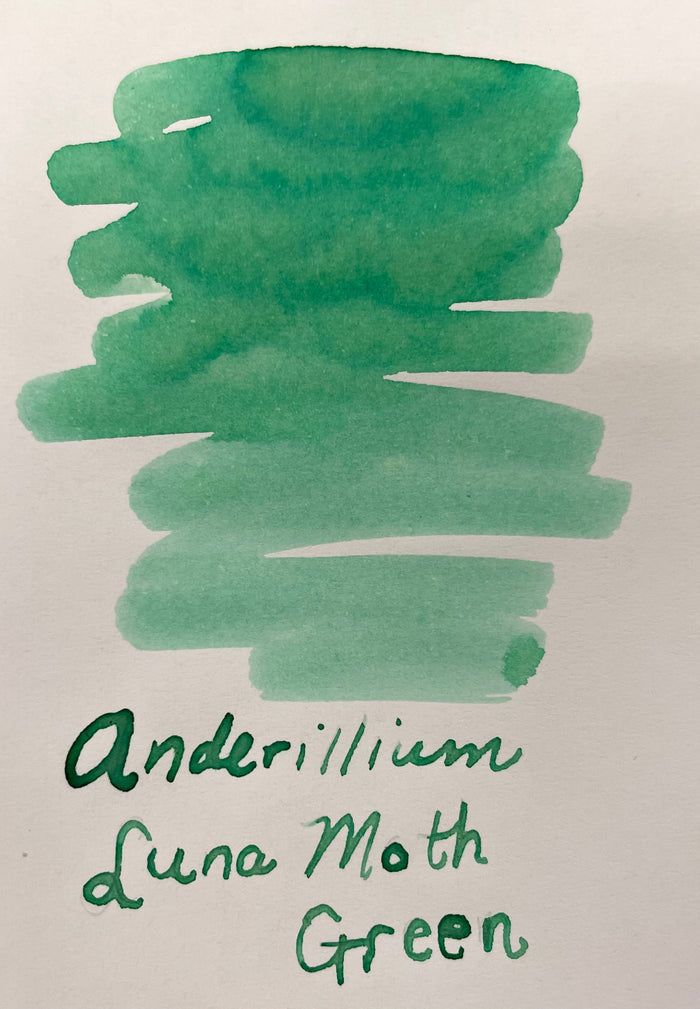 Anderillium
Luna Moth
Green